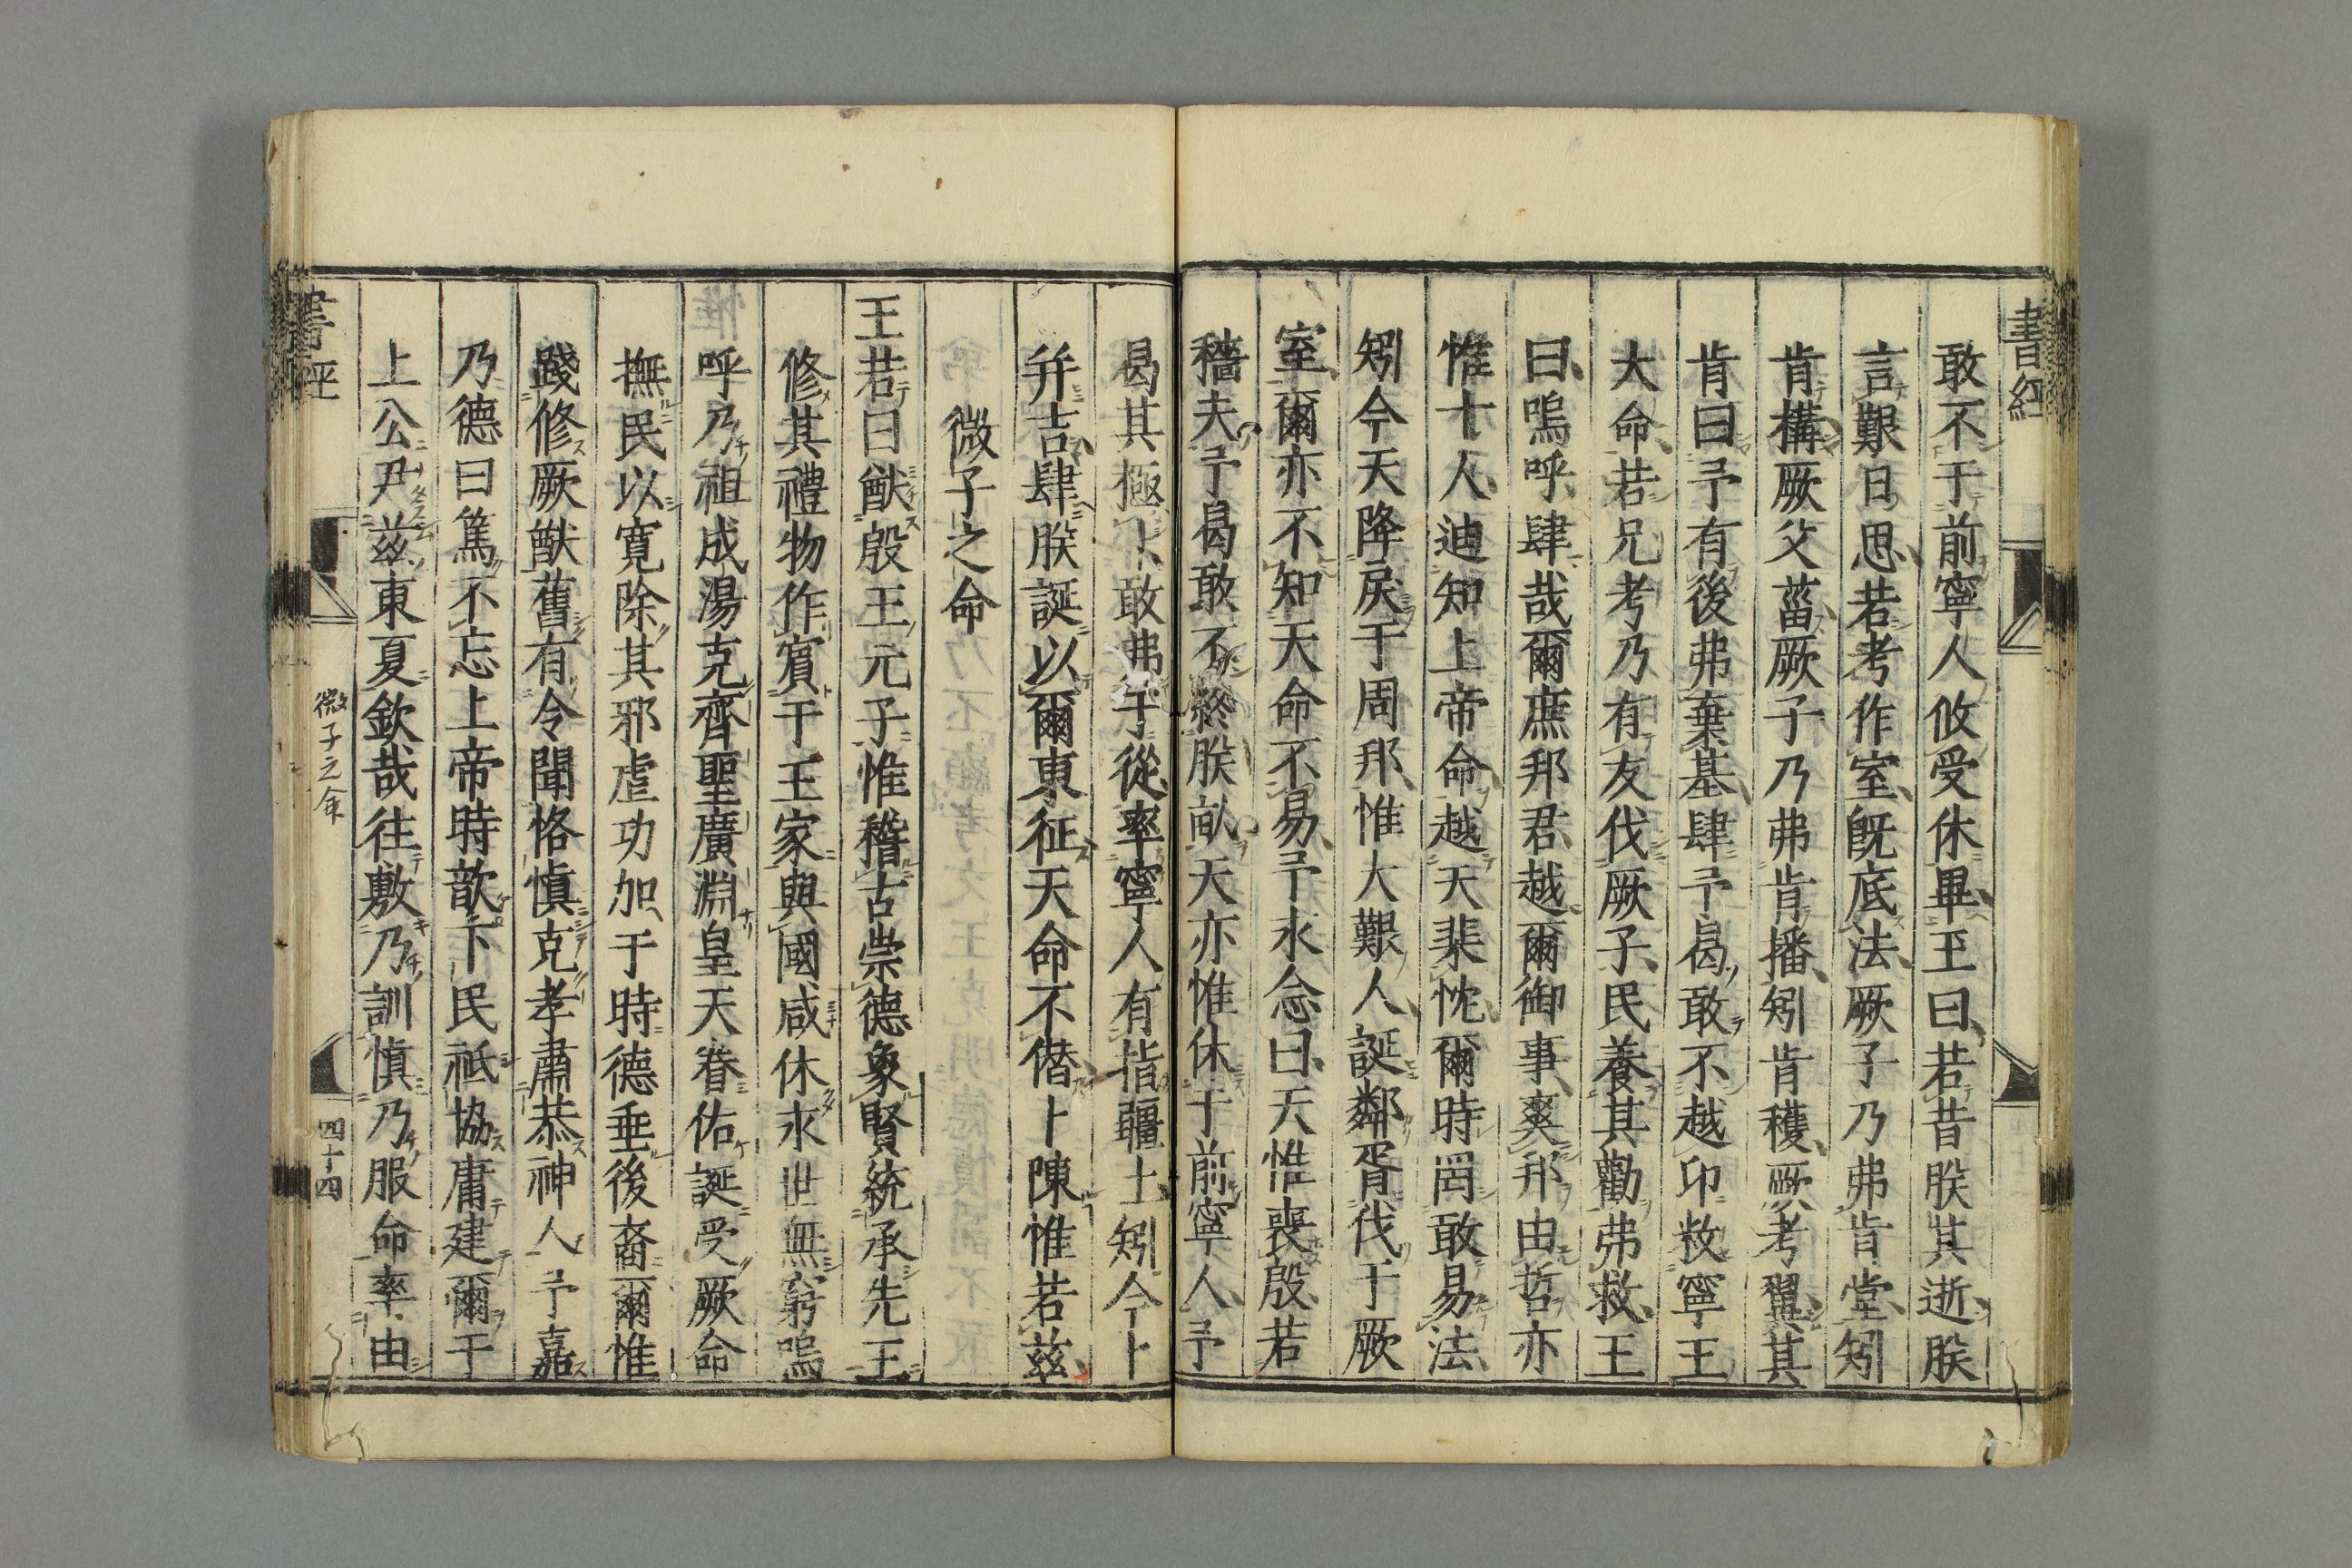 書經
敢不于前寧人攸受休畢王曰若昔朕其逝朕
言艱日思若考作室既底法厥子乃弗肯堂矧
肯構厥父菑厥子乃弗肯播矧肯穫厥考翼其
肯曰予有後弗棄基肆予曷敢不越卬敉寧王
大命若兄考乃有友伐厥子民養其勸弗救王
曰嗚呼肆哉爾庶邦君越爾御事爽邦由哲亦
惟十人迪知上帝命越天棐忱爾時罔敢易法
矧今天降戾于周邦惟大艱人誕鄰胥伐于厥
室爾亦不知天命不易予永念曰天惟喪殷若
穡夫予曷敢不終朕畝天亦惟休于前寧人予
曷其極卜敢弗于從率寧人有指疆土矧今卜
并吉肆朕誕以爾東征天命不僭卜陳惟若茲
微子之命
王若曰猷殷王元子惟稽古崇德象賢統承先王
修其禮物作賓于王家與國咸休永世無窮嗚
呼乃祖成湯克齊聖廣淵皇天眷佑誕受厥命
撫民以寬除其邪虐功加于時德垂後裔爾惟
踐修厥猷舊有令聞恪慎克孝肅恭神人予嘉
乃德曰篤不忘上帝時歆下民祗協庸建爾于
上公尹茲東夏欽哉往敷乃訓慎乃服命率由
書經
微子之命
四十四